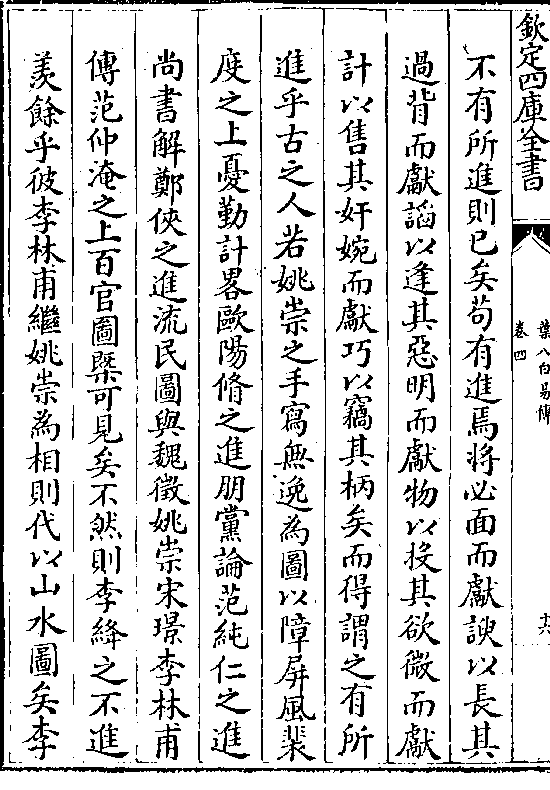 欽定四庫全書
葉八白易傳
卷四
十六
不有所進則已矣苟有進焉將必面而獻諛以長其
過背而獻謟以逢其惡明而獻物以投其欲微而獻
計以售其奸婉而獻巧以竊其柄矣而得謂之有所
進乎古之人若姚崇之手寫無逸為圖以障屏風裴
度之上憂勤計畧歐陽脩之進朋黨論范純仁之進
尚書解鄭俠之進流民圖與魏徵姚崇宋璟李林甫
傳范仲淹之上百官圖槩可見矣不然則李絳之不進
羡餘乎彼李林甫繼姚崇為相則代以山水圖矣李